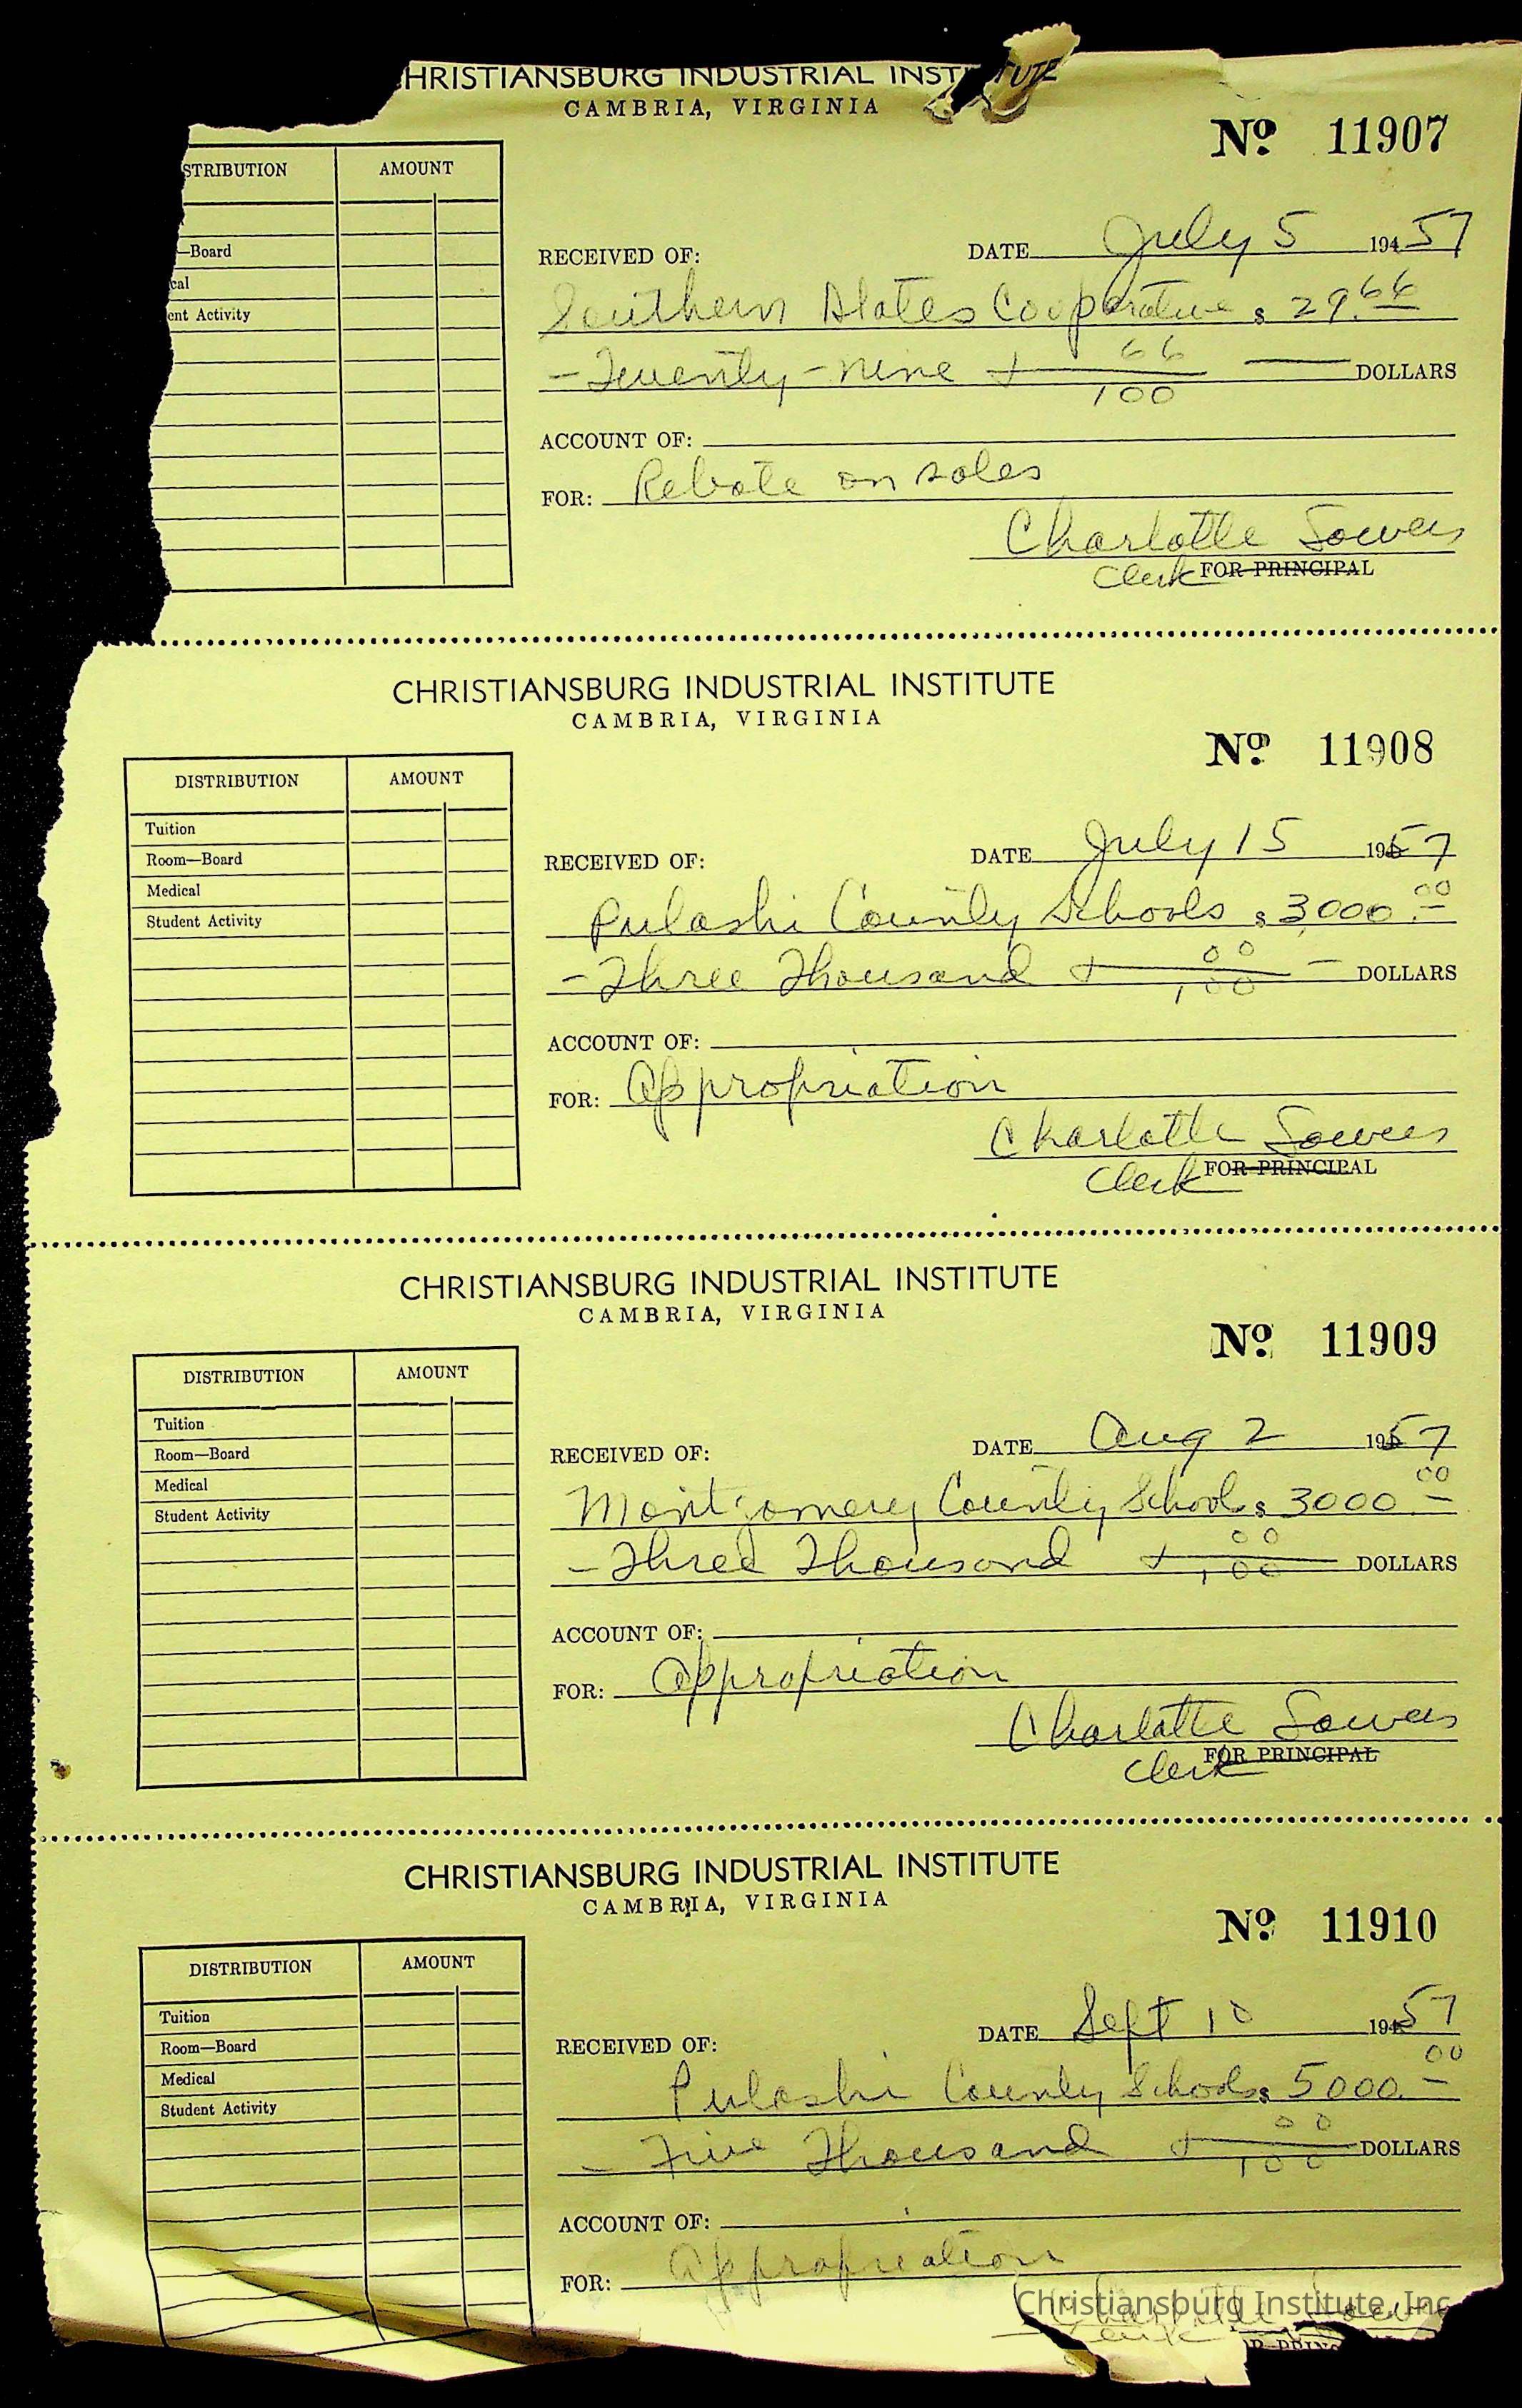 CHRISTIANSBURG INDUSTRIAL INSTITUTE
CAMBRIA, VIRGINIA
No 11907
STRIBUTION AMOUNT
—Board
cal
ent Activity
RECEIVED OF: DATE July 5 194 57
Southern States Cooperative $ 29.66
- Twenty-nine + 66/100 — DOLLARS
ACCOUNT OF:
FOR: Rebate on sales
Charlotte Sowers
Clerk FOR PRINCIPAL
CHRISTIANSBURG INDUSTRIAL INSTITUTE
CAMBRIA, VIRGINIA
No 11908
DISTRIBUTION AMOUNT
Tuition
Room—Board
Medical
Student Activity
RECEIVED OF: DATE July 15 1957
Pulaski County Schools $ 3000.00
- Three Thousand + 00/100 — DOLLARS
ACCOUNT OF:
FOR: Appropriation
Charlotte Sowers
Clerk FOR PRINCIPAL
CHRISTIANSBURG INDUSTRIAL INSTITUTE
CAMBRIA, VIRGINIA
No 11909
DISTRIBUTION AMOUNT
Tuition
Room—Board
Medical
Student Activity
RECEIVED OF: DATE Aug 2 1957
Montgomery County Schools $ 3000.00
- Three Thousand + 00/100 DOLLARS
ACCOUNT OF:
FOR: Appropriation
Charlotte Sowers
Clerk FOR PRINCIPAL
CHRISTIANSBURG INDUSTRIAL INSTITUTE
CAMBRIA, VIRGINIA
No 11910
DISTRIBUTION AMOUNT
Tuition
Room—Board
Medical
Student Activity
RECEIVED OF: DATE Sept 10 194 57
Pulaski County Schools $ 5000.00
- Five Thousand + 00/100 DOLLARS
ACCOUNT OF:
FOR: Appropriation
Christiansburg Institute, Inc
Charlotte Sowers
Clerk